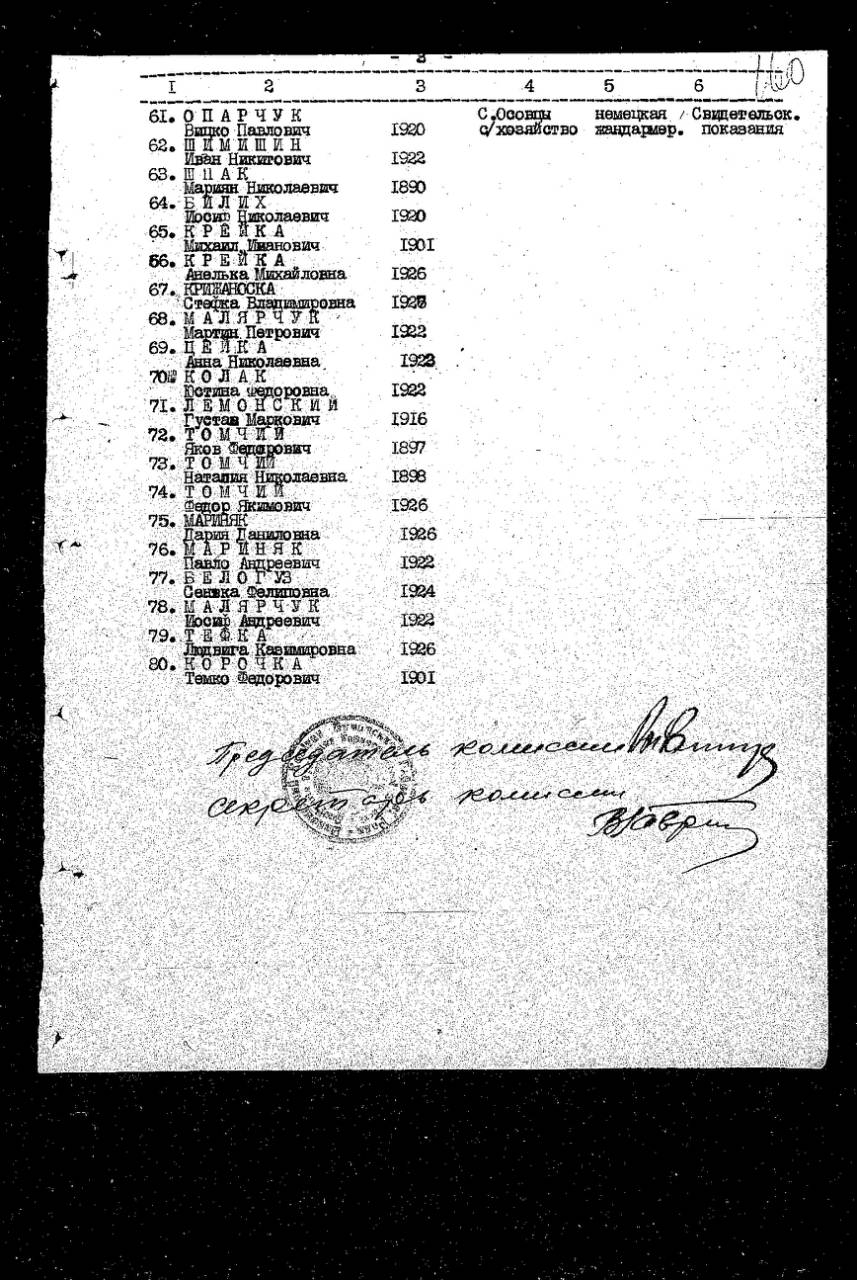 - 3 -
160
I 2 3 4 5 6
61. О П А Р Ч У К С.Осовцы немецкая Свидетельск.
Вицко Павлович 1920 с/хозяйство жандармер. показания
62. Ш И М И Ш И Н
Иван Никитович 1922
63. Ш П А К
Мариян Николаевич 1890
64. Б И Л И Х
Иосиф Николаевич 1920
65. К Р Е Й К А
Михаил Иванович 1901
66. К Р Е Й К А
Анелька Михайловна 1926
67. КРИЖАНОСКА
Стефка Владимировна
68. М А Л Я Р Ч У К
Мартин Петрович 1922
69. Ц Е Й К А
Анна Николаевна 1923
70 К О Л А К
Юстина Федоровна 1922
71. Л Е М О Н С К И Й
Густав Маркович 1916
72. Т О М Ч И Й
Яков Федорович 1897
73. Т О М Ч ИЙ
Наталия Николаевна 1898
74. Т О М Ч И Й
Федор Якимович 1926
75. МАРИНЯК
Дария Даниловна 1926
76. М А Р И Н Я К
Павло Андреевич 1922
77. Б Е Л О Г УЗ
Сенька Фелиповна 1924
78. М А Л Я Р Ч У К
Иосиф Андреевич 1922
79. Т Е Ф К А
Людвига Казимировна 1926
80. К О Р О Ч К А
Темко Федорович 1901
Председатель комиссии
секретарь комиссии